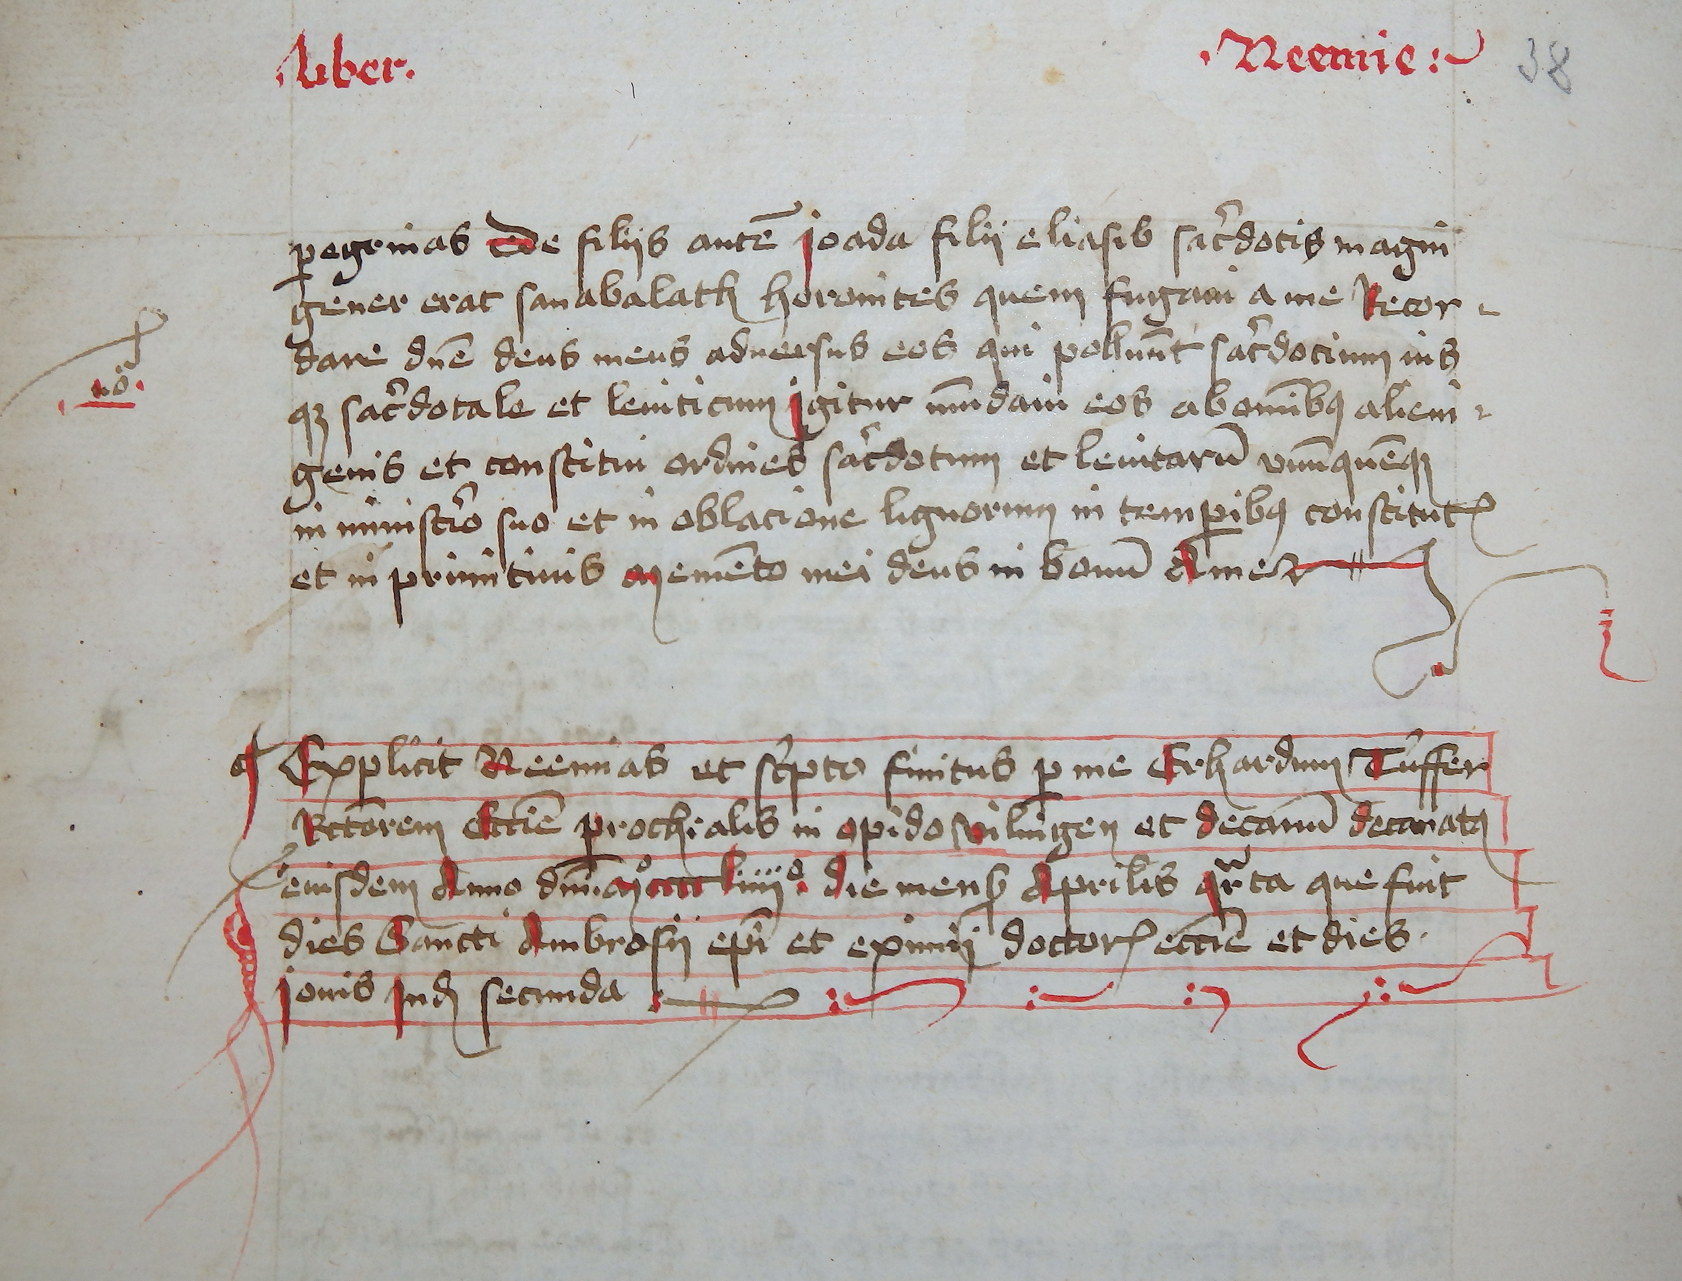 .Liber. .Neemie :~ 38
p̲egrinas De filijs autē Joada filij eliasib sac͛dotis magni
gener erat sanabalath horonites quem fugaui a me Recor-
dare dn̄e deus meus aduersus eos qui polluūt sac͛docium ius
no͛.
qꝫ sac͛dotale et leuiticum Igitur mūdaui eos ab om̄ibꝰ alieni-
genis et constitui ordines sac͛dotum et leuitarū vnūquēqꝫ
in minist͛io suo et in oblacione lignorum in temꝑibꝰ constitutꝭ
et in primitiuis Memēto mei deus in bonū Amen
Explicit Neemias et sc͛pto finitus ꝑ me Erhardum Tuffer
Rctōrem eccīe ꝑrochialis in opido vilingen et decanū decanatꝰ
eiusdem Anno dnī Mͦ cccc liiiiͦ. die mensꝭ Aprilis qͬrta que fuit
dies Sancti Ambrosij ep̄i et eximij doctorꝭ eccīe et dies.
Jouis Indꝭ secunda